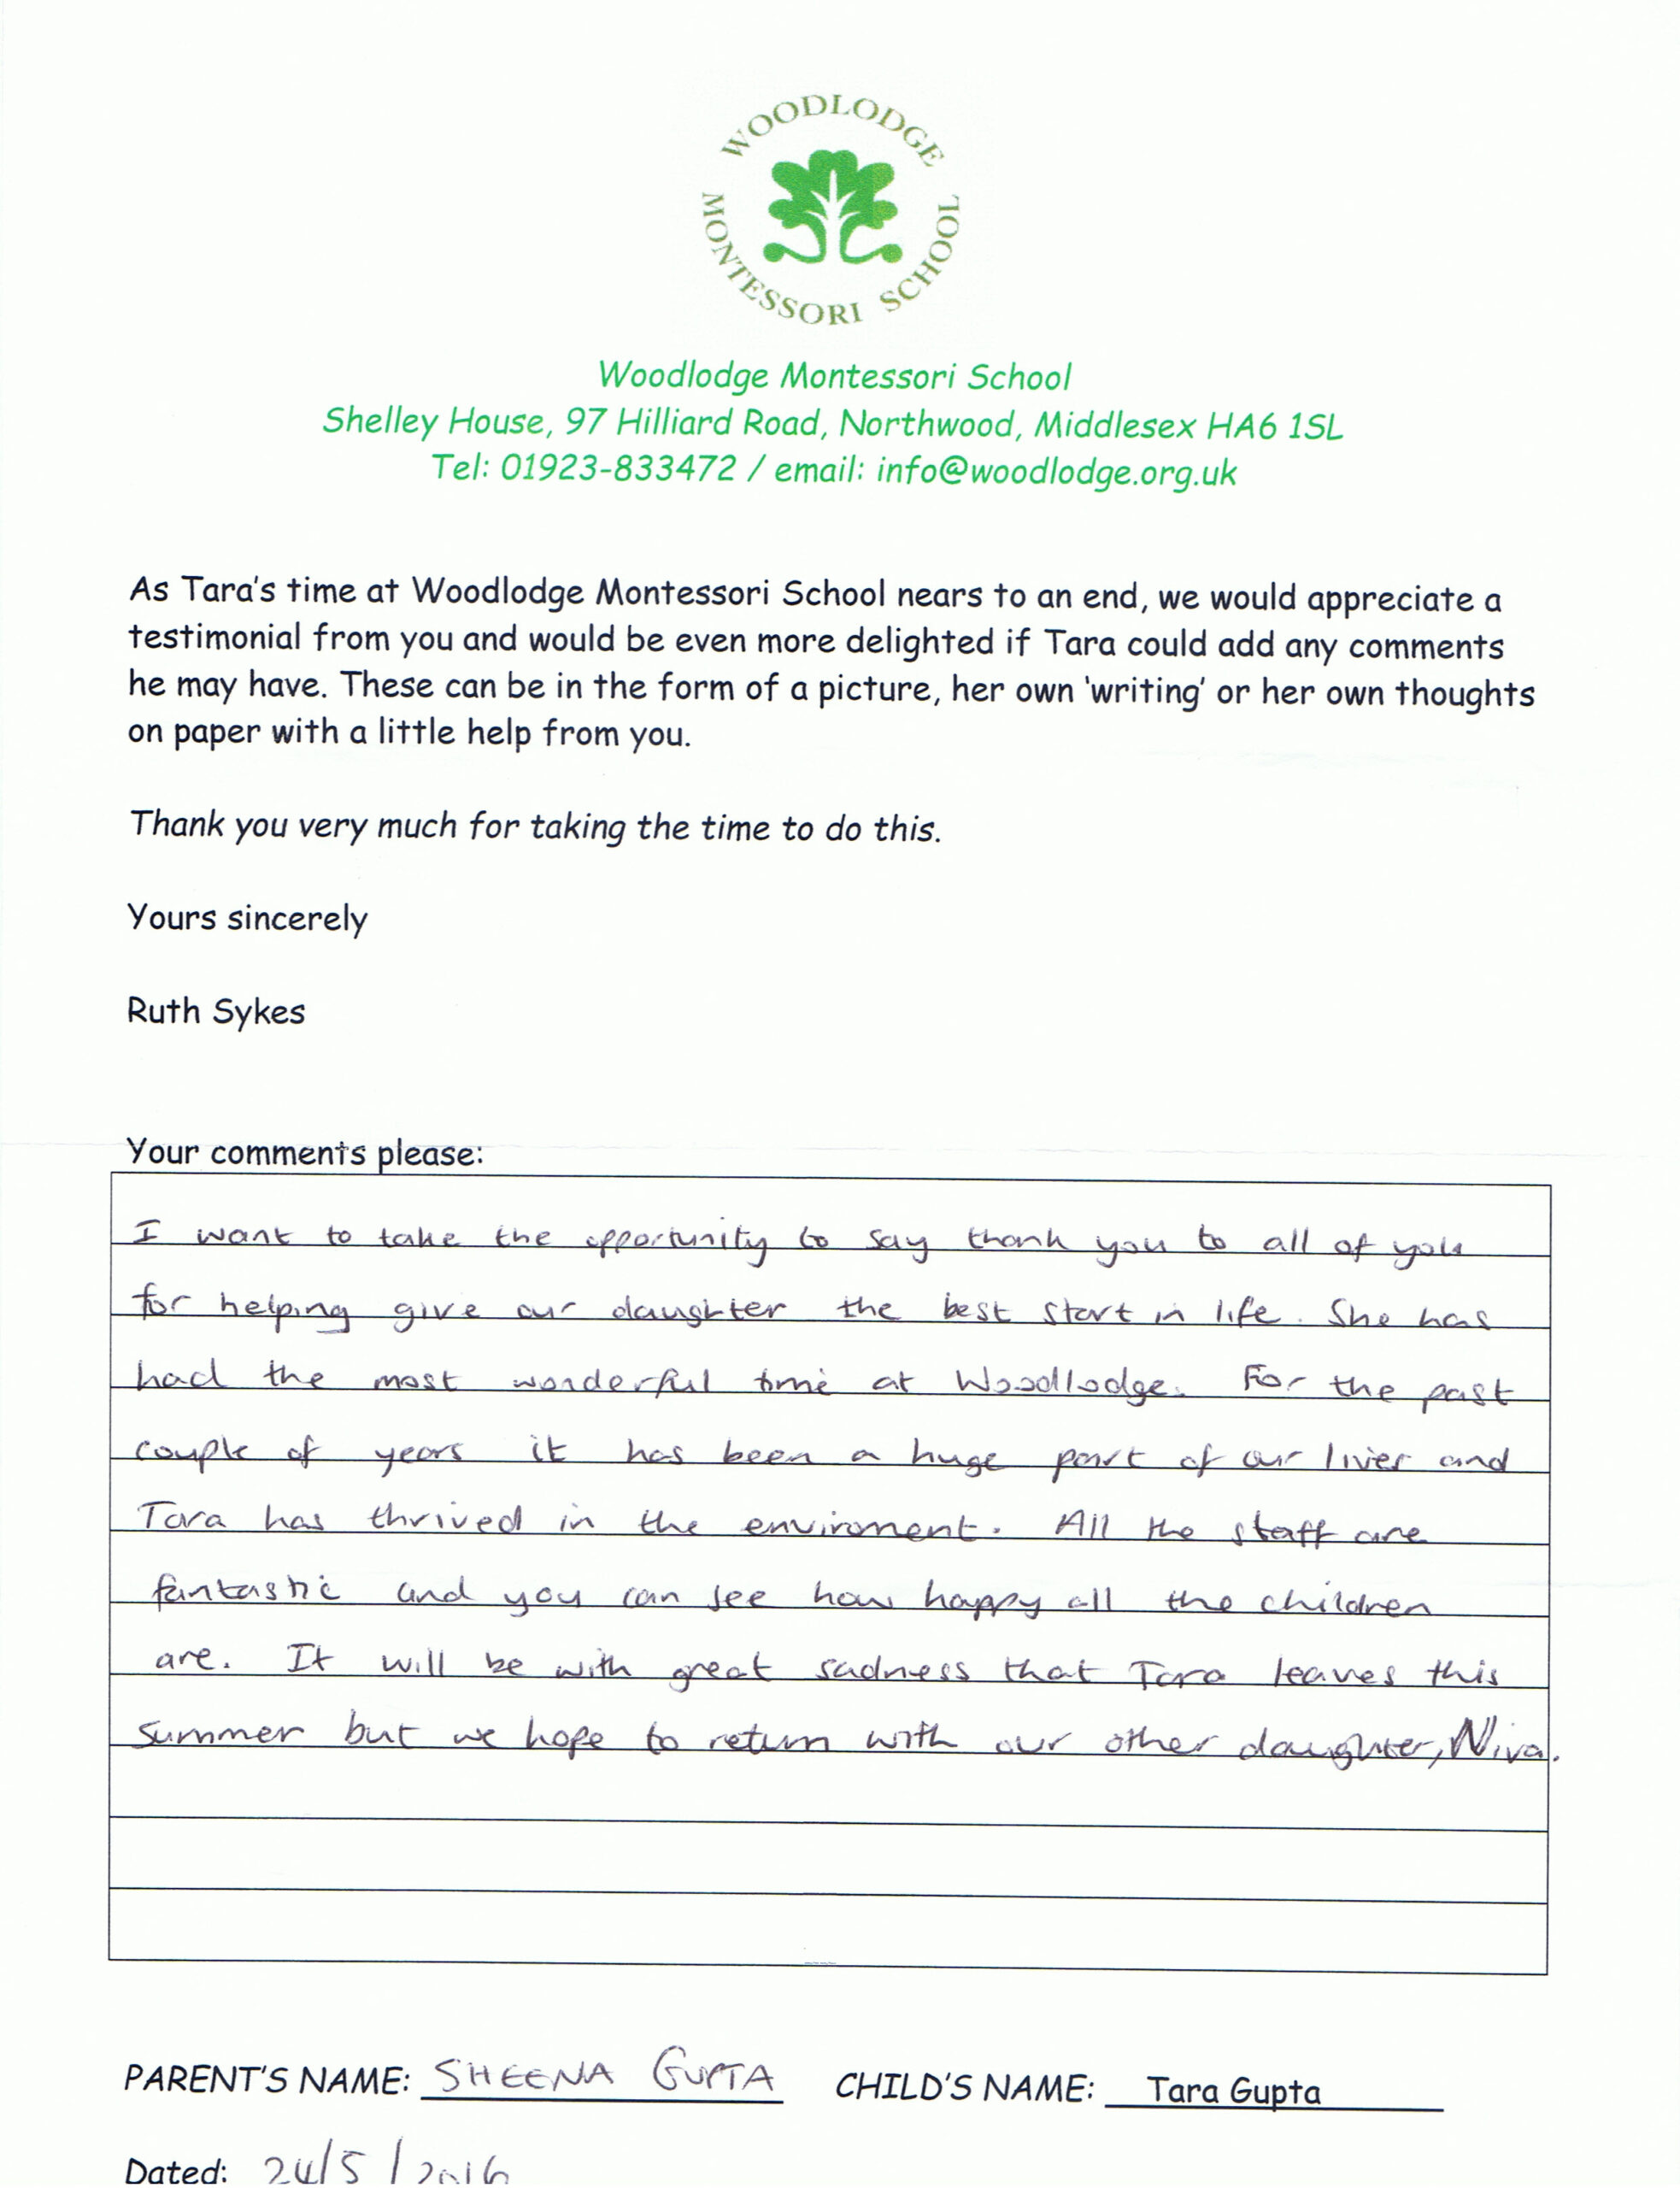 WOODLODGE
MONTESSORI SCHOOL
Woodlodge Montessori School
Shelley House, 97 Hilliard Road, Northwood, Middlesex HA6 1SL
Tel: 01923-833472 / email: info@woodlodge.org.uk
As Tara's time at Woodlodge Montessori School nears to an end, we would appreciate a
testimonial from you and would be even more delighted if Tara could add any comments
he may have. These can be in the form of a picture, her own 'writing' or her own thoughts
on paper with a little help from you.
Thank you very much for taking the time to do this.
Yours sincerely
Ruth Sykes
Your comments please:
I want to take the opportunity to say thank you to all of you
for helping give our daughter the best start in life. She has
had the most wonderful time at Woodlodge. For the past
couple of years it has been a huge part of our lives and
Tara has thrived in the enviroment. All the staff are
fantastic and you can see how happy all the children
are. It will be with great sadness that Tara leaves this
summer but we hope to return with our other daughter, Niva.
PARENT'S NAME: SHEENA GUPTA CHILD'S NAME: Tara Gupta
Dated: 24/5/2016